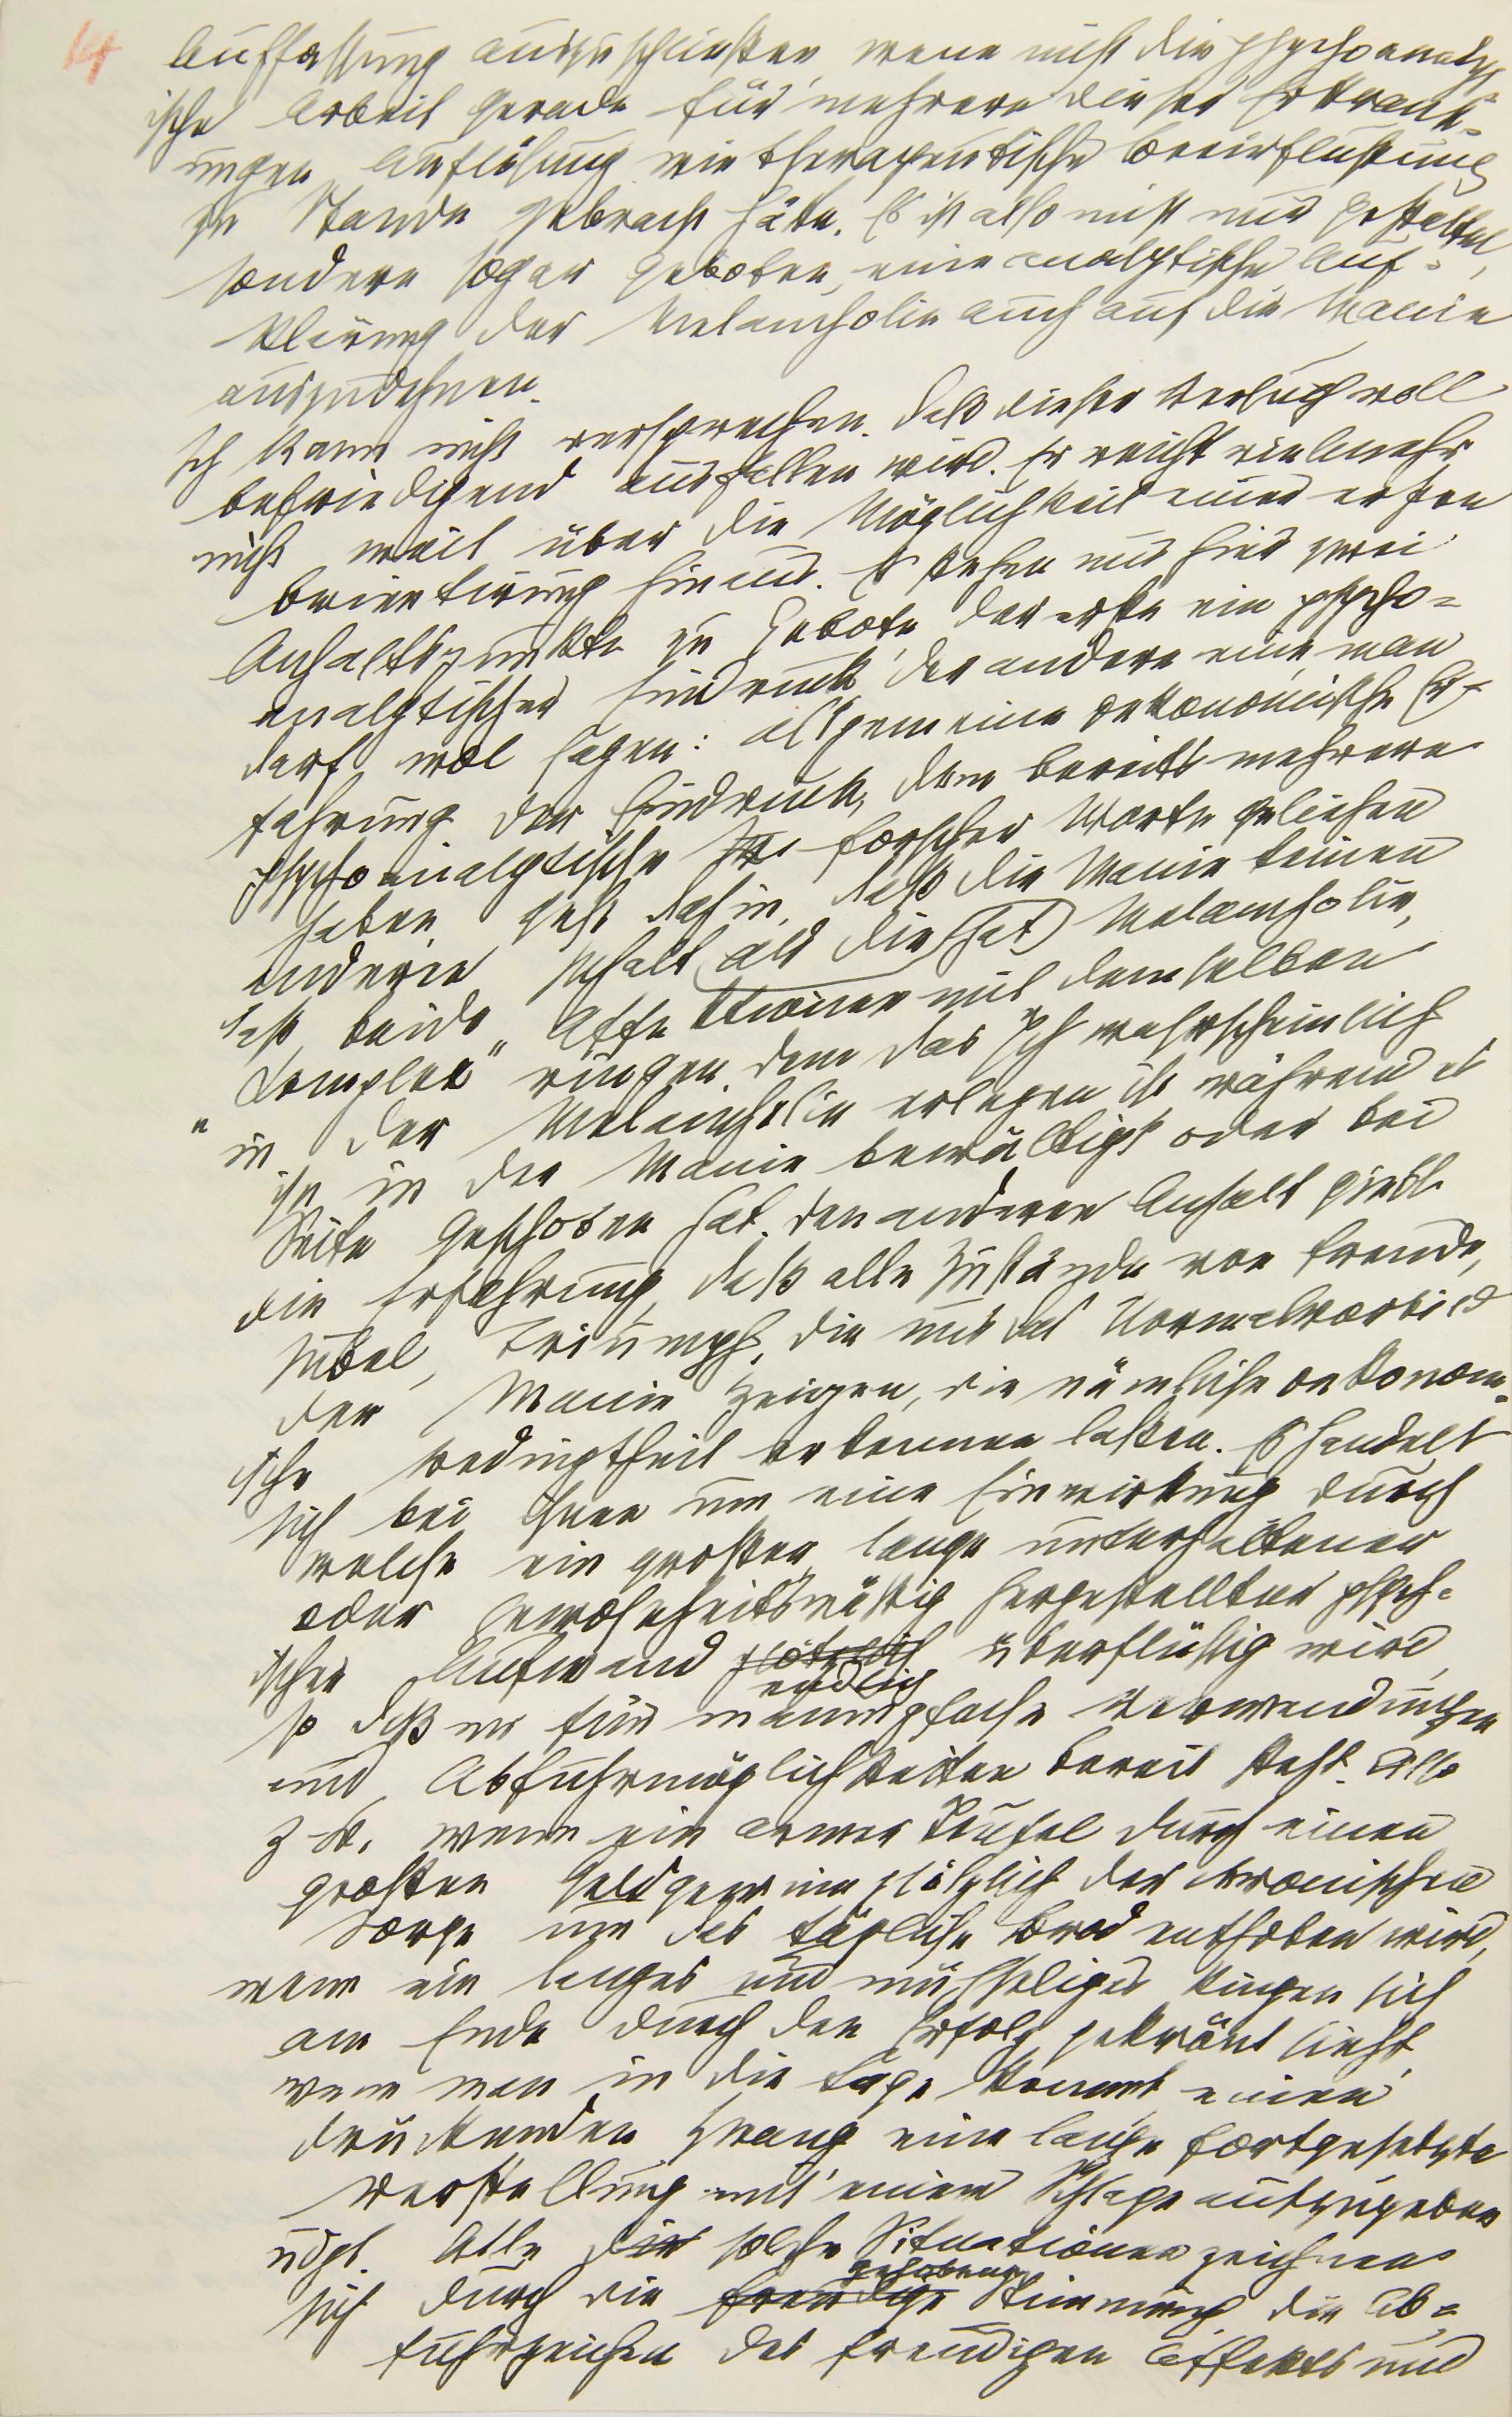 14
Auffassung auszuschließen wenn nicht die psychoanalyt
ische Arbeit gerade für mehrere dieser Erkrank-
ungen Auflösung wie therapeutische Beeinflußung
zu Stande gebracht hätte. Es ist also nicht nur gestattet,
sondern sogar geboten, eine analytische Auf-
klärung der Melancholie auch auf die Manie
auszudehnen.
Ich kann nicht versprechen, daß dieser Versuch voll
befriedigend ausfallen wird. Er reicht vielmehr
nicht weit über die Möglichkeit einer ersten
Orientirung hinaus. Es stehen uns hier zwei
Anhaltspunkte zu Gebote, der erste ein psycho-
analytischer Eindruck, der andere eine, man
darf wol sagen: allgemeine oekonomische Er-
fahrung. Der Eindruck, dem bereits mehrere
psychoanalytische Forscher Worte geliehen
haben, geht dahin, daß die Manie keinen
anderen Inhalt (als die (hat) Melancholie,
daß beide Affektionen mit demselben
„Complex" ringen, dem das Ich wahrscheinlich
in der Melancholie erlegen ist während es
ihn in der Manie bewältigt oder bei
Seite geschoben hat. Den anderen Anhalt giebt
die Erfahrung, daß alle Zustände von Freude,
Jubel, Triumph, die uns das Normalvorbild
der Manie zeigen, die nämliche oekonom-
ische Bedingtheit erkennen laßen. Es handelt
sich bei ihnen um eine Einwirkung durch
welche ein großer, lange unterhaltener
oder gewohnheitsmäßig hergestellter psych-
ischer Aufwand plötzlich überflüßig wird,
endlich
so daß er für mannigfache Verwendungen
und Abfuhrmöglichkeiten bereit steht. Also
z. B. wenn ein armer Teufel durch einen
großen Geldgewinn plötzlich der chronischen
Sorge um das tägliche Brod enthoben wird,
wenn ein langes und mühseliges Ringen sich
am Ende durch den Erfolg gekrönt sieht,
wenn man in die Lage kommt einen
drückenden Zwang eine lange fortgesetzte
Verstellung mit einem Schlage aufzugeben
udgl. Alle die solche Situationen zeichnen
gehobene
sich durch die freudige Stimmung die Ab-
fuhrzeichen des freudigen Affekts und